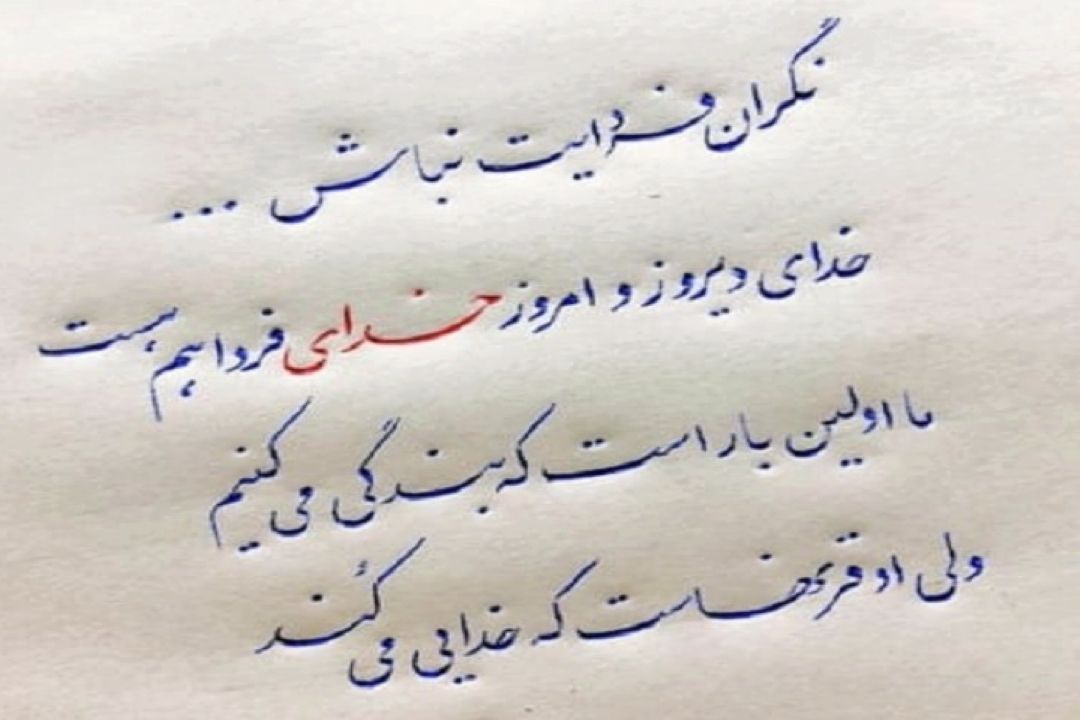 نگران فردایت نباش ...
خدای دیروز و امروز خدای فردا هم هست
ما اولین بار است که بندگی می کنیم
ولی او قرنهاست که خدایی می کُند